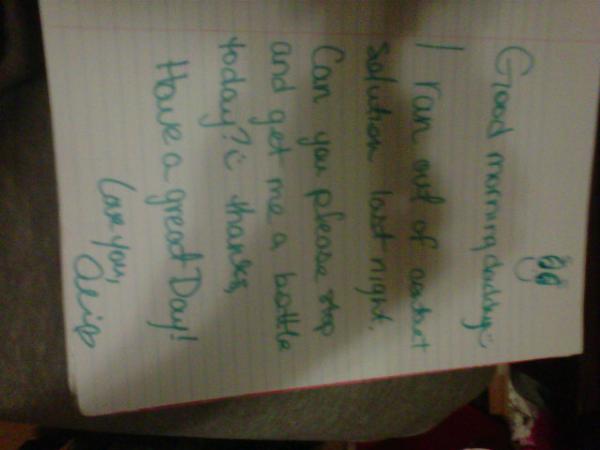 Good morning daddy :)
I ran out of contact
solution last night.
Can you please stop
and get me a bottle
today? :) thanks,
Have a great Day!
Love you,